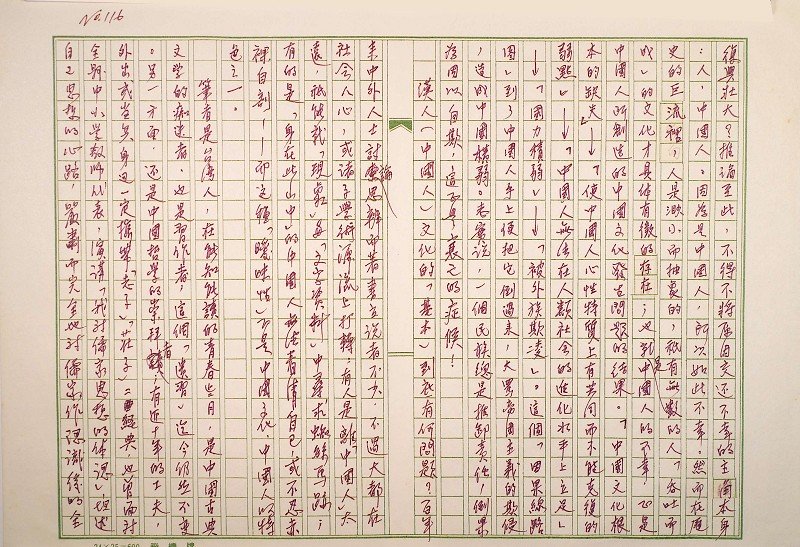 No.116
復興壯大？推論至此，不得不將歷因交還不幸的主個本身
：人，中國人。因為是中國人，所以如此不幸。然而在歷
史的巨流裡，人是渺小而抽象的，祇有無數的人「吞吐而
成」的文化才具体有徵的存在；也就是中國人的不幸，正是
中國人所創造的中國文化發生問題的結果。「中國文化根
本的缺失」→「使中國人心性特質上有共同而不能克復的
弱點」→「中國人無法在人類社會的進化水平上立足」
→「國力積弱」→「被外族欺凌」。這個「因果線路
圖」到了中國人手上便把它倒過來，大罵帝國主義的欺侵
，造成中國積弱。老實說，一個民族總是推卸責任，倒果
為因以自欺，這正是衰亡的症候！
漢人（中國人）文化的「基本」到底有何問題？百年
來中外人士討論思辨而著書立說者不少，不過大都在
社會人心，或諸子學術源流上打轉；有人是離「中國人」太
遠，祇能就「現象」與「文字資料」中尋求蜘絲馬跡；
有的是「身在此山中」的中國人無法看清自己，或不忍赤
裸自剖──即這種「曖昧性」正是中國文化、中國人的特
色之一。
筆者是台灣人，在能知能讀的青春歲月，是中國古典
文學的痴迷者，也是習作者，這個「遺習」迄今仍然不變
。另一方面，還是中國哲學的崇拜者，有近十年的工夫，
外出或坐臥身邊一定攜帶「老子」「莊子」二經典；也曾面對
全縣中小學教師代表，演講「我對儒家思想的体認」，坦述
自己思想的心路，嚴肅而完全地對儒家作認識後的全
24×25=600